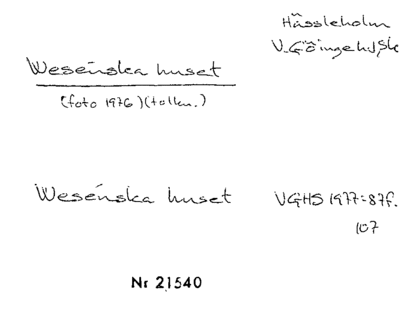 Hässleholm
V. Göinge hd, Sk
Wesénska huset
(foto 1976)(tolkn.)
Wesénska huset VGHS 1977:87f.
107
Nr 21540